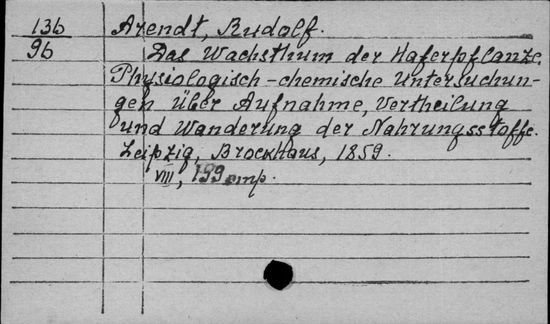 136 Arendt, Rudolf.
96 Das Wachsthum der Haferpflanze.
Physiologisch-chemische Untersuchun-
gen über Aufnahme, Vertheilung
und Wanderung der Nahrungsstoffe.
Leipzig, Brockhaus, 1859.
VIII, 199